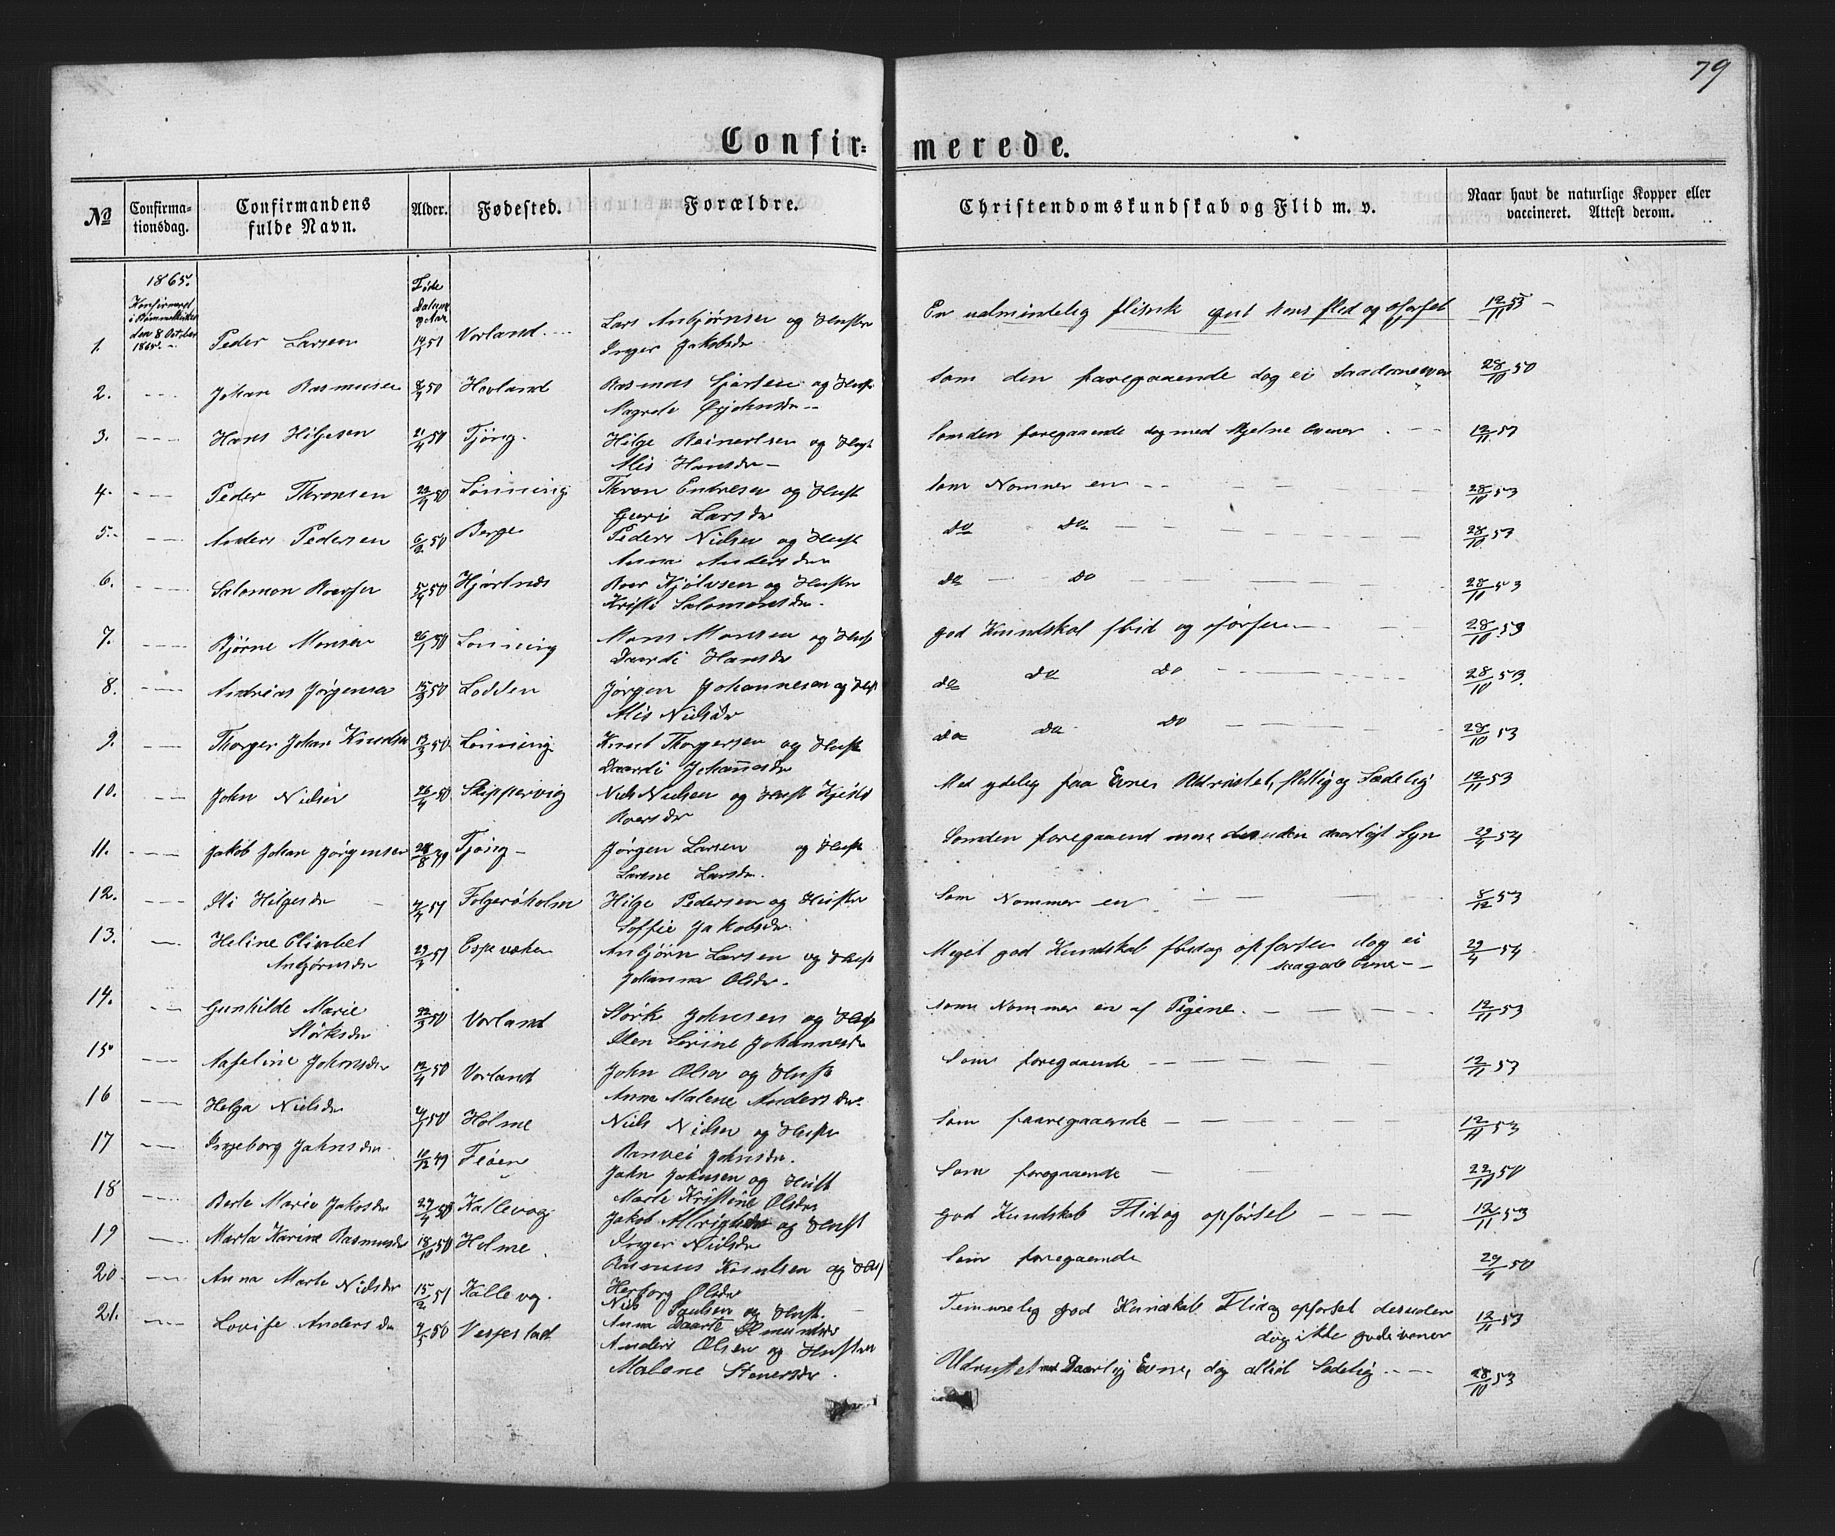 79
Confirmerede.
No
Confirmationsdag.
Confirmandens fulde Navn.
Alder.
Fødested.
Forældre.
Christendomskundskab og Flid m. v.
Naar havt de naturlige Kopper eller vaccineret. Attest derom.
1865.
den 8 October 1865
Føde Datum og Aar
1. Peder Larsen 51 Vorland. Lars Anbjørnsen og Hustr
Inger Jakobsdr
En udmindelig flisik god kons flid og 12/11 53
2. Johan Rasmusen 50 Hovland Rasmus og Hustr
Magrete
som den foregaaende dog ei 28/10 50
3. Hans Hilgesen 21/4 50 Tjøng. Hilge Reinertsen og Hust
Alis Hansdr
Som den foregaaende dog med Evener 12/11 51
4. Peder Thronsen 50 Lønning Thron Endresen og Hust
Guri Larsdr
som Nommer en 28/10 53
5. Anders Pedersen 50 Berge Peders Nilsen og Hust
Anna Andersdr
do do 28/10 53
6. Salomon Roersen 50 Hjertnes Roer Kjølvsen og Hustr
Kristi Salomonsdr.
do do 28/10 53
7. Bjørne Monsen 26/1 50 Lønning Mons Monsen og Hust
Daardi Hansdr
god Kundskab flid og 28/10 53
8. Andreas Jørgensen 15/3 50 Lodden Jørgen Johannesen og Hust
Alis Nielsdr
do do do 28/10 53
9. Thorger Johan Knudsen 50 Lønning Knut Thorgersen og Hust
Daardi Johannesdr
do do do 28/10 53
10. John Nielsen 26/4 50 Skippervig Niels Nielsen og Hust
Roersdr
Med ydelig faa Evner Udrustet, flittig og Sædelig 12/11 53
11. Jakob Johan Jørgensen 49 Tjøng Jørgen Larsen og Hust
Larsdr.
Som den foregaaend men desuden daarligt Syn 29/4 54
12. Ili Helgesdr 51 Folgerøholm Hilge Pedersen og Hustr
Soffie Jakobsdr
Som Nommer en 8/12 53
13. Heline Elisabet
Anbjørnsdr 51 Espevæker Anbjørn Larsen og Hust
Johanna Olsdr.
Meget god Kundskab flid og opførsen dog ei
saa gode Evne 29/4 54
14. Gunhilde Marie
Størksdr 22/3 50 Vorland Størk Johnsen og Hust
Elen Serine Johannesdr
som Nommer en af Pigene. 12/11 53
15 Johnsdr 12/4 50 Vorland John Olsen og Hust
Anna Malene Andersdr.
Som foregaaende 12/11 53
16 Helga Nielsdr 50 Holme Niels Nielsen og Hustr
Ranvei Johnsdr.
Som foregaaende 12/11 53
17 Ingeborg Johnsdr 10/12 49 Fiøen John Johnsen og Hust
Marte Kristine Olsdr
Som foregaaende 22/11 50
18 Berte Marie Jakobsdr 50 Kallevog Jakob og Hust
Inger Nielsdr
god Kundskab Flid og opførsel 12/11 53
19 Marta Karine Rasmusdr 18/10 50 Holme Rasmus Knutsen og Hust
Herborg Olsdr
Som foregaaende 29/4 50
20 Anna Marte Nielsdr 15/2 51 Kallevog. Nils Paulsen og Hust.
Anna Daarte
Temmelig god Kundskab Flid og opførsel desuden
dog ikke gode evner 12/11 53
21. Lovise Andersdr 50 Vespestad Anders Olsen og Hustru
Malene Stenersdr.
Udrustet med Daarlig Evne, dog altid Sædelig 28/10 53